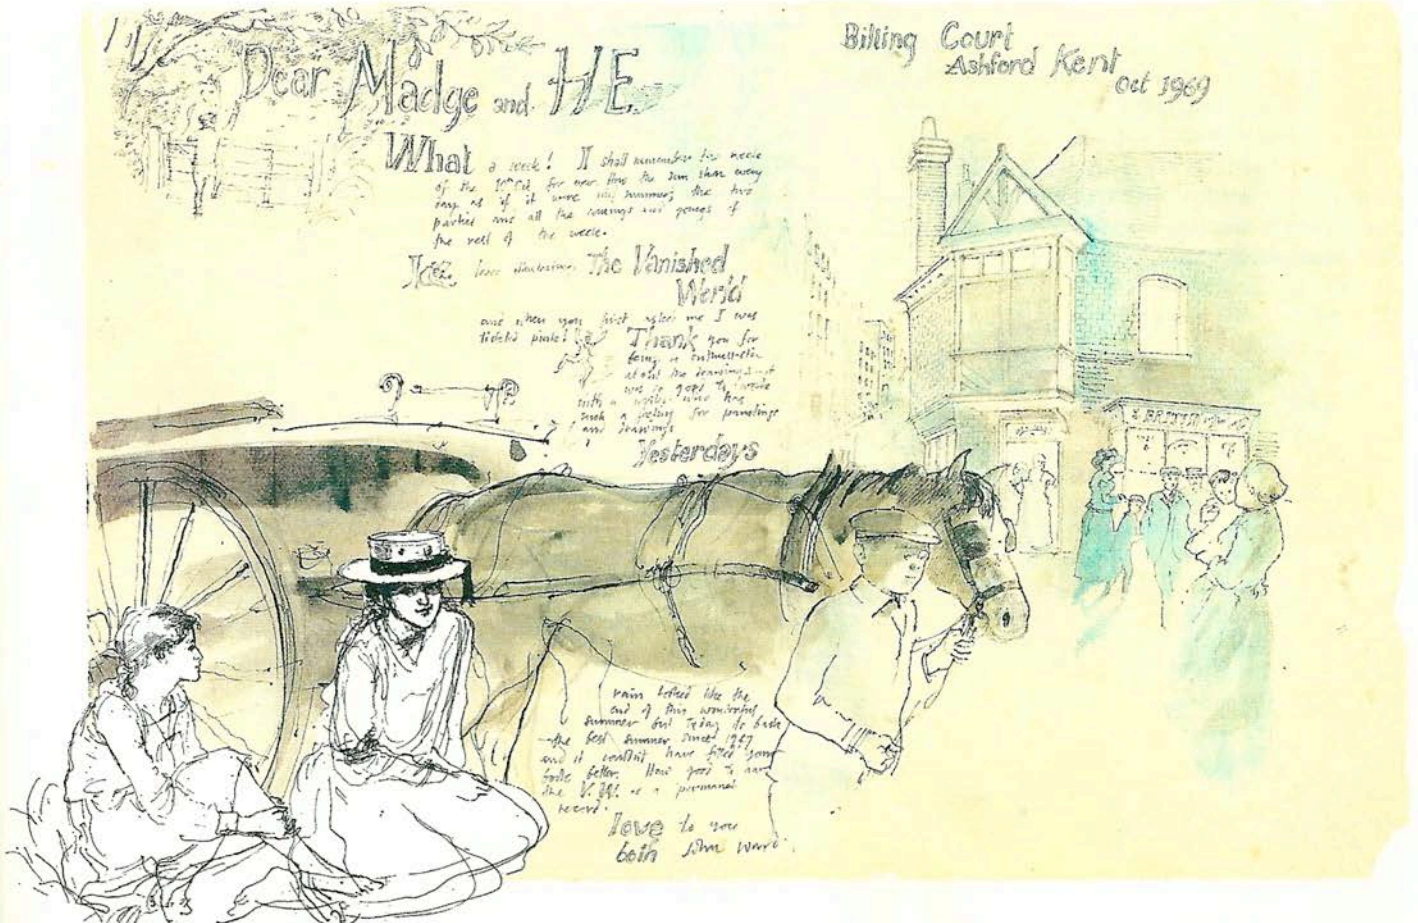 Billing Court
Ashford Kent
Oct 1969
Dear Madge and HE
What a week! I shall remember this week
of the for ever. How the sun shone every
day as if it were still summer, the two
parties and all the comings and goings of
the rest of the week.
I love The Vanished
World
and when you first asked me I was
tickled pink!
Thank you for
being so enthusiastic
about the drawings – it
was so good to work
with a writer who has
such a feeling for paintings
and drawings
Yesterdays
rain looked like the
end of this wonderful
summer but Today is back
– the best summer since 19
and it couldn't have fitted your
book better. How good to have
the V.W. as a permanent
record.
love to you
both John Ward.